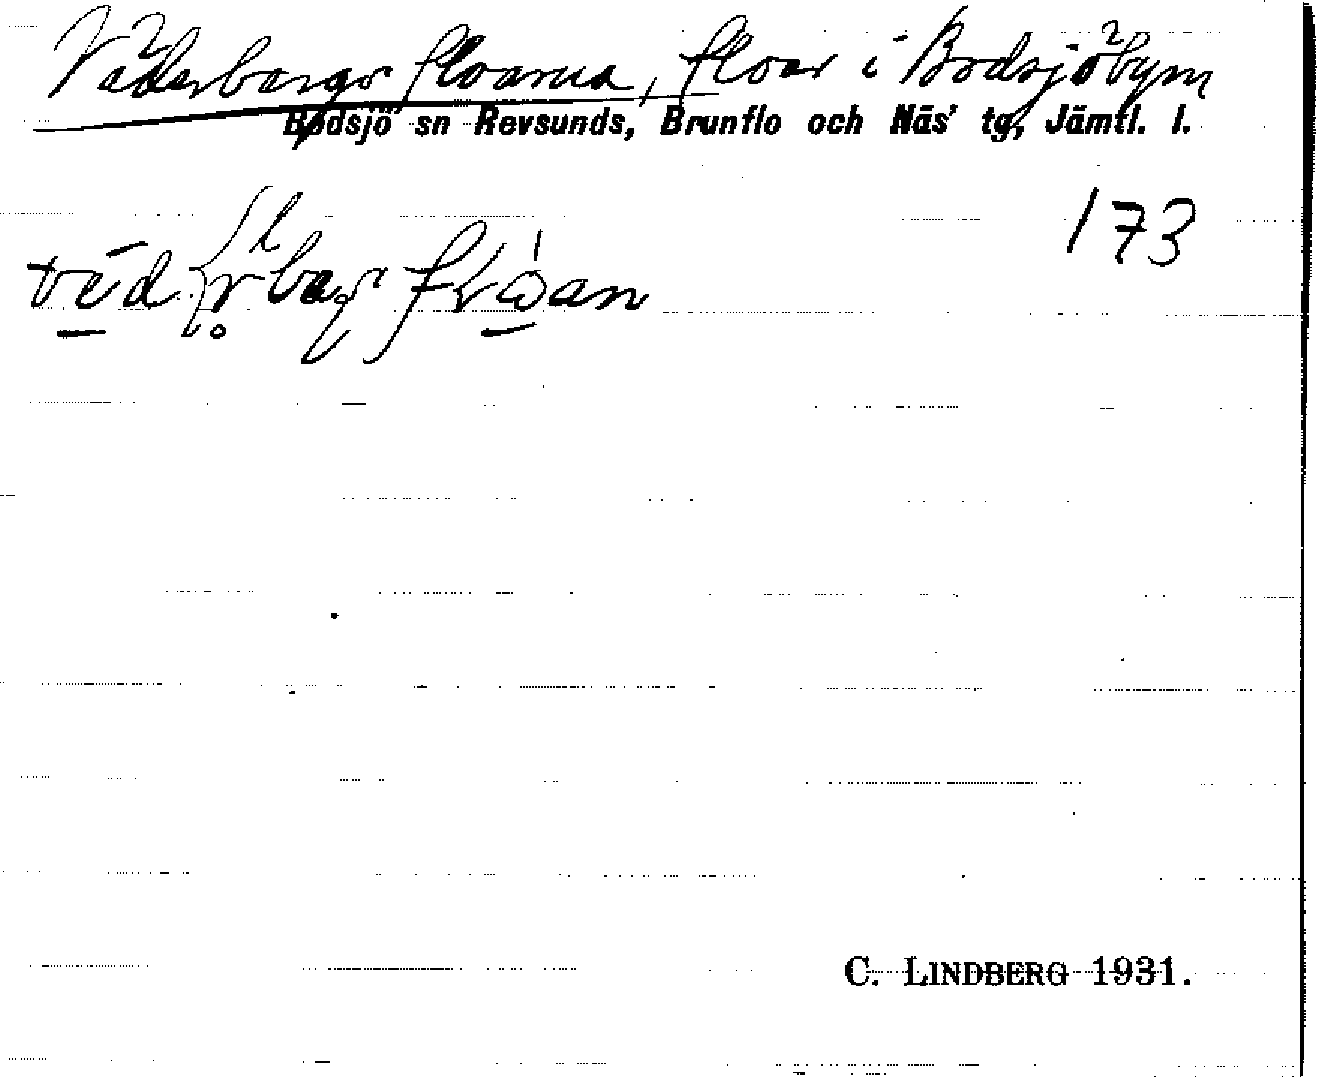 Väderbergsfloarna, floar i Bodsjöbyn
Bodsjö sn Revsunds, Brunflo och Näs' tg, Jämtl. l.
173
C. LINDBERG 1931.